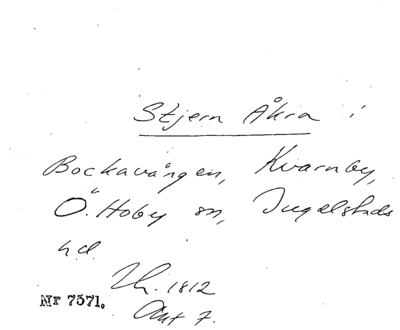 Stjern Åkra i
Bockavången, Kvarnby,
Ö. Hoby sn, Ingelstads
hd.
1812
Akt 7.
Nr 7371.